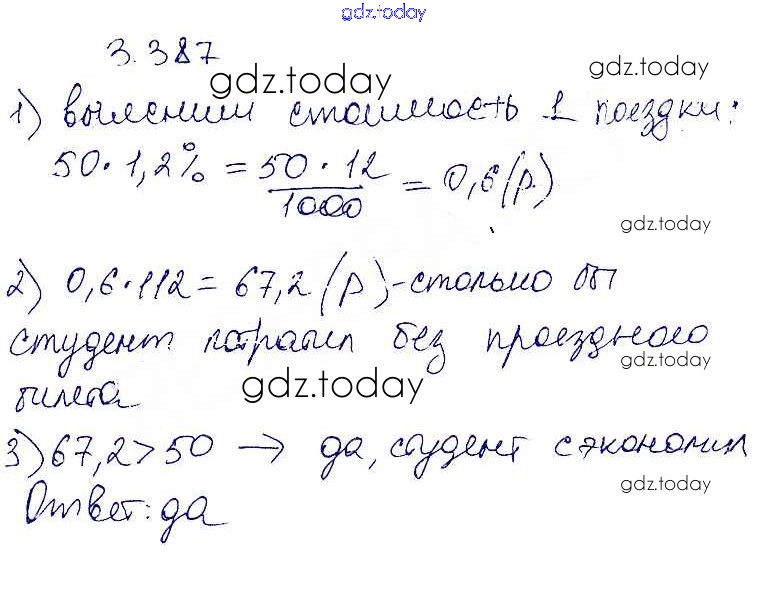 gdz.today
3.387
gdz.today
gdz.today
1) выясним стоимость 1 поездки:
50 · 1,2% = 50 · 12 / 1000 = 0,6 (р.)
gdz.today
2) 0,6 · 112 = 67,2 (р) - столько бы
студент потратил без проездного
gdz.today
билета
gdz.today
3) 67,2 > 50 → да, студент сэкономил
gdz.today
Ответ: да